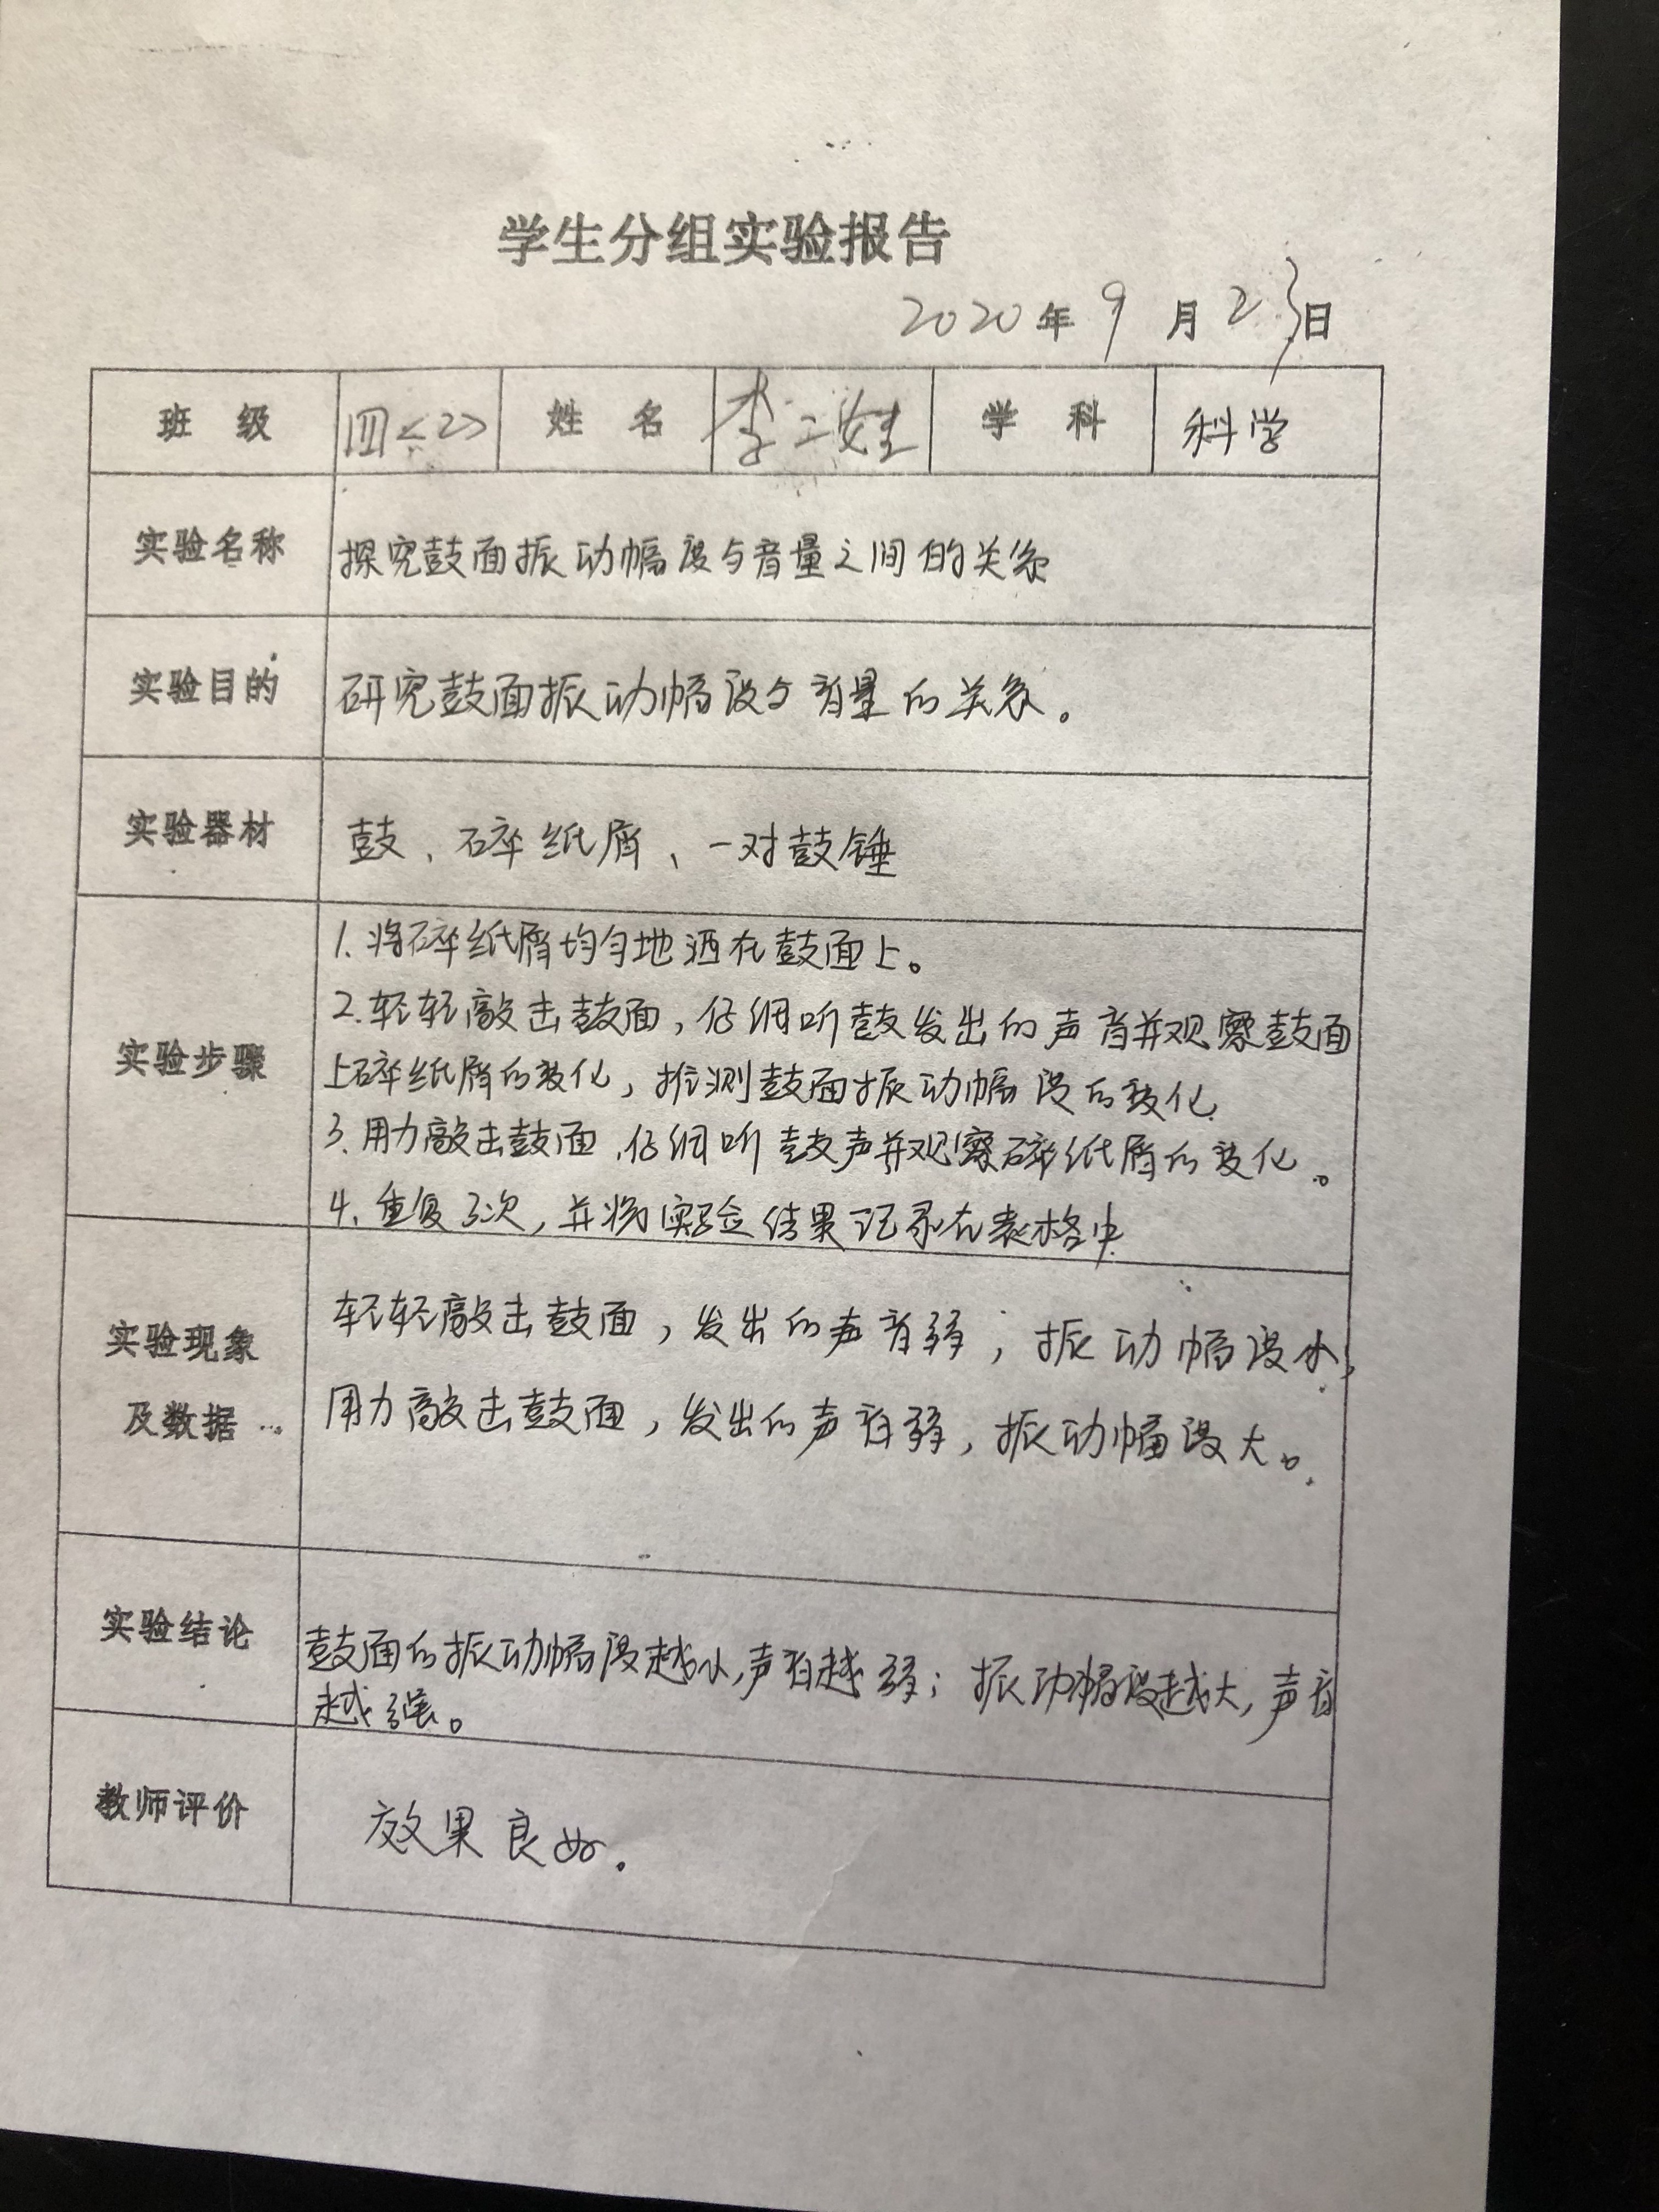 学生分组实验报告
2020年9月23日
班 级 四<2> 姓 名 李二娃 学 科 科学
实验名称 探究鼓面振动幅度与音量之间的关系
实验目的 研究鼓面振动幅度与音量的关系。
实验器材 鼓、碎纸屑、一对鼓锤
实验步骤
1.将碎纸屑均匀地洒在鼓面上。
2.轻轻敲击鼓面,仔细听鼓发出的声音并观察鼓面
上碎纸屑的变化,推测鼓面振动幅度的变化.
3.用力敲击鼓面,仔细听鼓声并观察碎纸屑的变化。
4.重复3次,并将实验结果记录在表格中.
实验现象
及数据
轻轻敲击鼓面,发出的声音弱,振动幅度小;
用力敲击鼓面,发出的声音弱,振动幅度大。
实验结论
鼓面的振动幅度越小,声音越弱;振动幅度越大,声音
越强。
教师评价 效果良好.